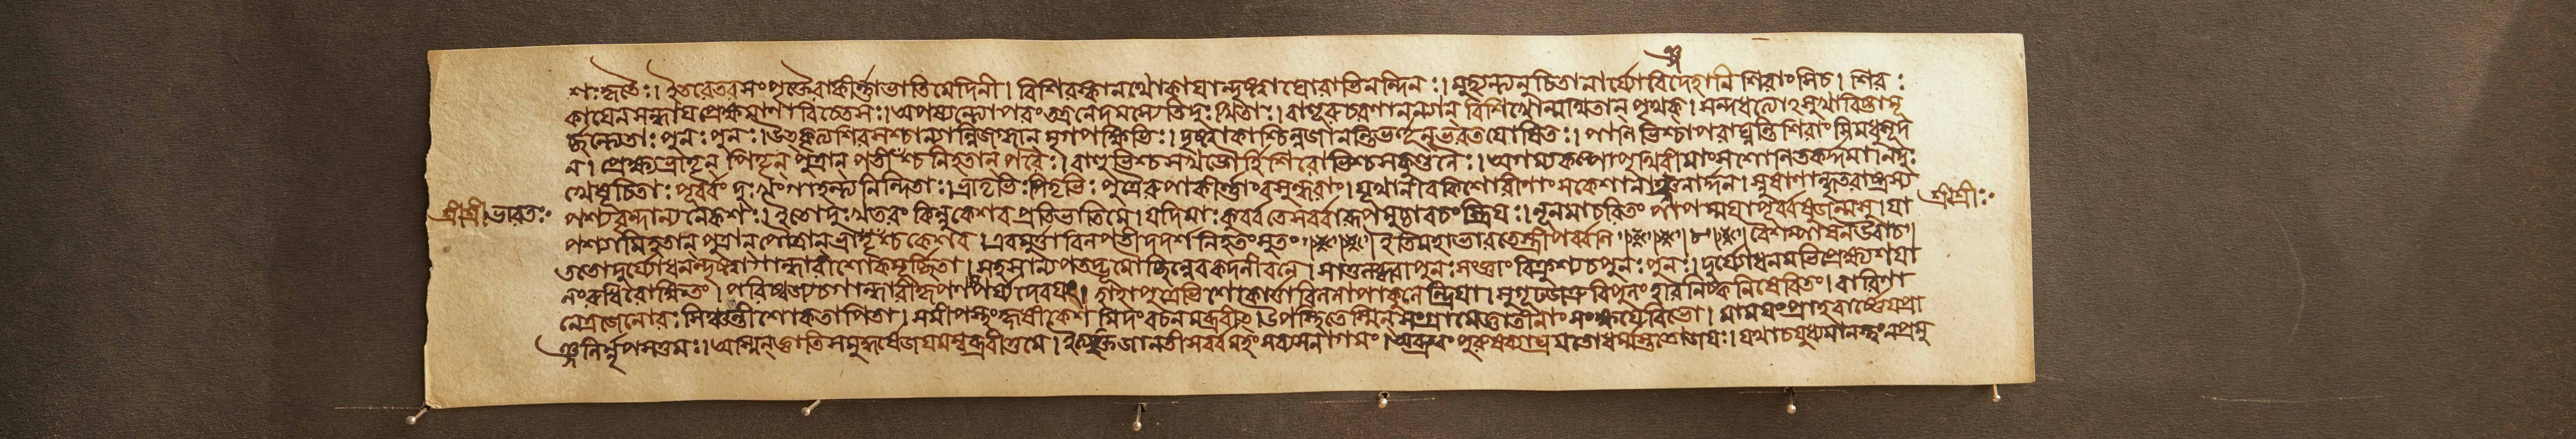 শঃহৃতৈঃ। ইতরেতরসংপৃক্তৈরাকীর্ণাভাতিমেদিনী। বিশিরস্কানথোকাযান্দৃষ্ট্বাঘোরাভিনন্দিনঃ। মুহ্যন্ত্যনুচিতানার্য্যোবিদেহানিশিরাংসিচ। শিরঃ
কাযেনসন্ধাযপ্রেক্ষমাণাবিচেতসঃ। অপশ্যন্ত্যোপরংতত্রনেদমস্যেতিদুঃখিতাঃ। বাহূরুচরণানন্যান্ বিশিখোন্মথিতান্ পৃথক্। সন্দধত্যোঽসুখাবিষ্টামূ
র্চ্ছন্ত্যেতাঃ পুনঃপুনঃ। উৎকৃত্যশিরসশ্চান্যান্নিজগ্ধান্ মৃগপক্ষিভিঃ। দৃষ্ট্বাকাশ্চিন্নজানন্তিভর্তৄন্ভরতযোষিতঃ। পাণিভিশ্চাপরাঘ্নন্তিশিরাংসিমধুসূদ
ন। প্রেক্ষ্যভ্রাতৄন্ পিতৄন্ পুত্রান্ পতীংশ্চনিহতান্ পরৈঃ। বাহুভিশ্চসখড়্গৈর্হিশিরোভিশ্চসকুণ্ডলৈঃ। অগম্যকল্পাপৃথিবীমাংসশোণিতকর্দ্দমা। নদুঃ
খেষূচিতাঃ পূর্ব্বং দুঃখংগাহন্ত্যনিন্দিতাঃ। ভ্রাতৃভিঃপিতৃভিঃ পুত্রৈরুপাকীর্ণাংবসুন্ধরাং। যূথানীবকিশোরীণাংসকেশানাংজনার্দ্দন। স্নুষাণান্ধৃতরাষ্ট্রস্য
শ্রীশ্রীভারতঃ পশ্যবৃন্দান্যনেকশঃ। ইতোদুঃখতরং কিন্নুকেশব প্রতিভাতিমে। যদিমাঃ কুর্ব্বতেসর্ব্বারূপমুচ্চাবচংস্ত্রিযঃ। নূনমাচরিতং পাপম্মযাপূর্ব্বেষুজন্মসু। যা শ্রীশ্রীঃ
পশ্যামিহতান্ পুত্রান্পৌত্রান্ভ্রাতৄংশ্চকেশব। এবমার্ত্তাবিলপতীদদর্শনিহতংসুতং॥ ইতিমহাভারতেস্ত্রীপর্ব্বণি॥ বৈশম্পাযনউবাচ।
ততোদুর্য্যোধনন্দৃষ্ট্বাগান্ধারীশোকমূর্চ্ছিতা। সহসান্যপতদ্ভূমৌচ্ছিন্নেবকদলীবনে। সাতুলব্ধ্বাপুনঃসংজ্ঞাংবিক্রুশ্যচপুনঃপুনঃ। দুর্য্যোধনমভিপ্রেক্ষ্যশযা
নংরুধিরোক্ষিতং। পরিষ্বজ্যচগান্ধারীকৃপণংপর্য্যদেবযৎ। হাহাপুত্রেতিশোকার্ত্তাবিললাপাকুলেন্দ্রিযা। সুগূঢজত্রুবিপুলংহারনিষ্কনিষেবিতং। বারিণা
নেত্রজেনোরঃসিঞ্চন্তীশোকতাপিতা। সমীপস্থংহৃষীকেশমিদংবচনমব্রবীৎ। উপস্থিতেঽস্মিন্সংগ্রামেজ্ঞাতীনাং সংক্ষযেবিভো। মামযংপ্রাহবার্ষ্ণেযপ্রা
ঞ্জলির্নৃপসত্তমঃ। অস্মিন্জ্ঞাতিসমুদ্ধর্ষেজযমম্বব্রবীতুমে। ইত্যুক্তেজানতীসর্ব্বমহংস্বব্যসনাগমং। অব্রুবং পুরুষব্যাঘ্রযতোধর্ম্মস্ততোজযঃ। যথাচযুধ্যমানস্ত্বংনপ্রমু